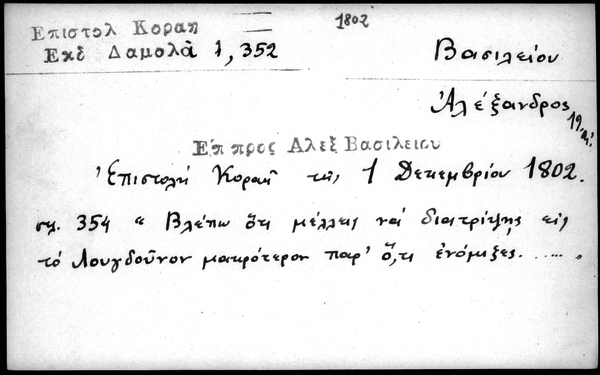 1802
Επιστολ Κοραη
Εκδ Δαμολᾶ 1,352
Βασιλείου
Ἀλέξανδρος
19. αἰ.
Επ προς Αλεξ Βασιλειου
Ἐπιστολή Κοραῆ τῆς 1 Δεκεμβρίου 1802.
σελ. 354 « Βλέπω ὅτι μέλλεις νά διατρίψῃς εἰς
τό Λουγδοῦνον μακρότερον παρ' ὅ,τι ἐνόμιζες. .....